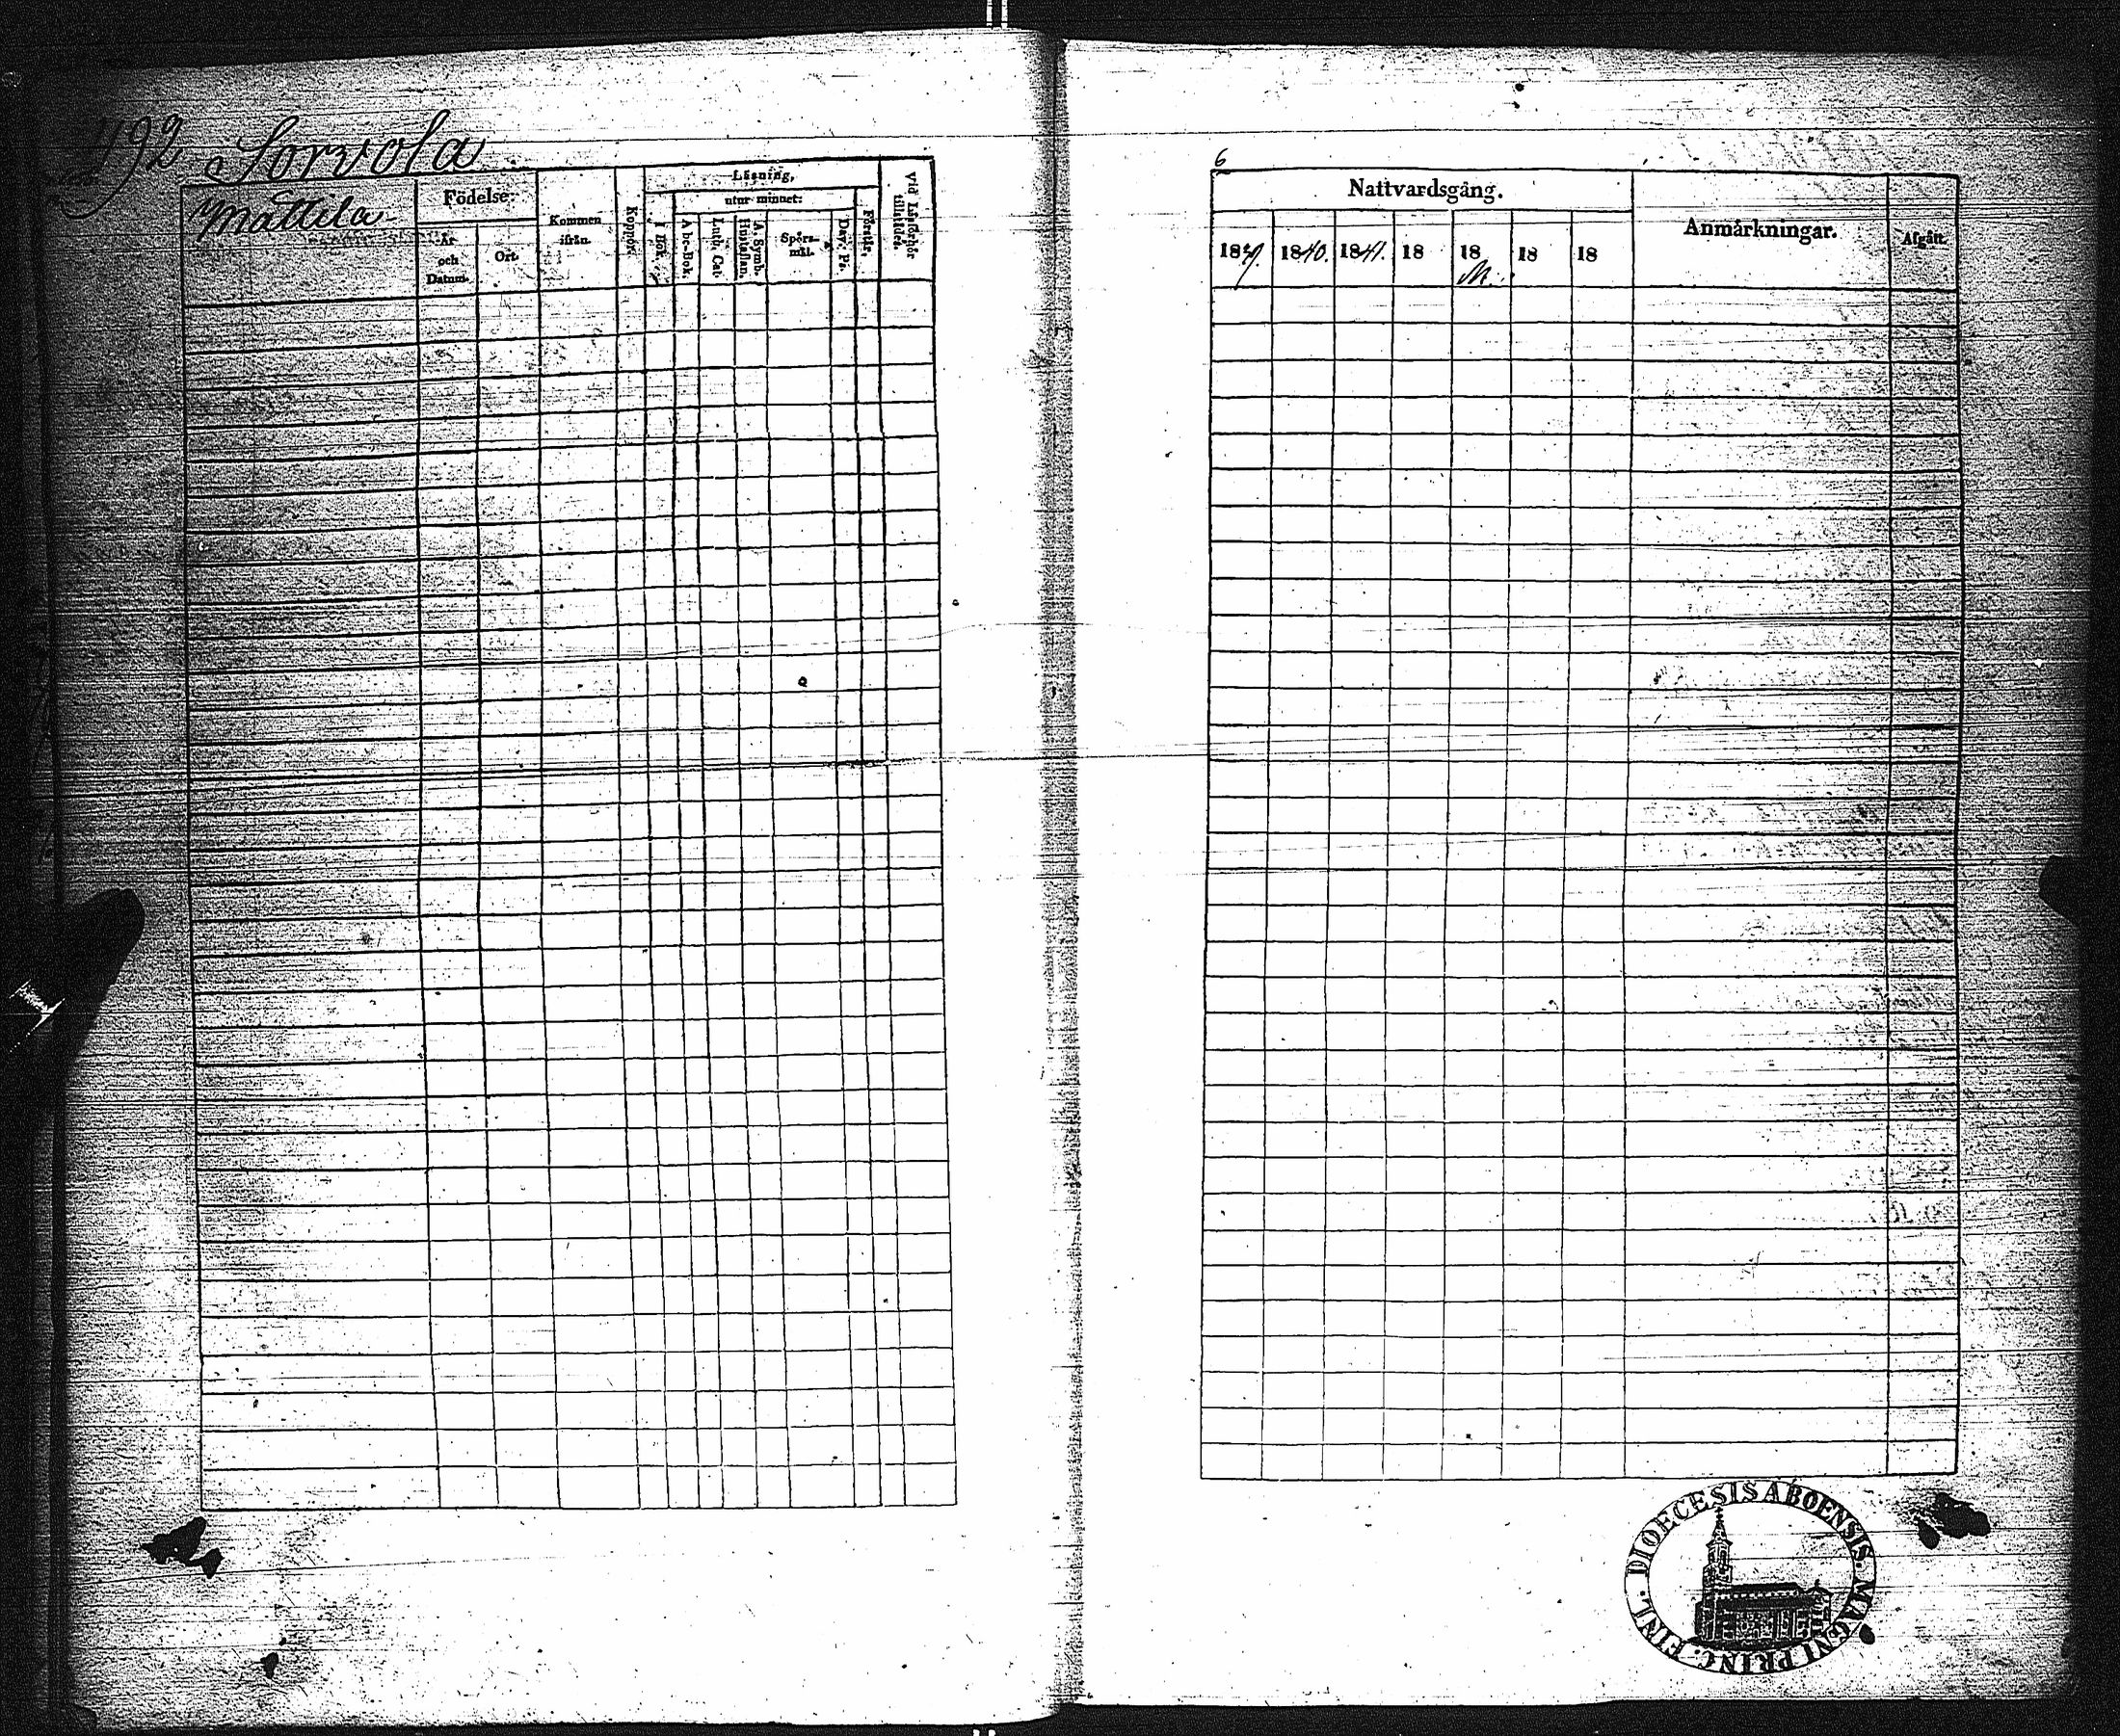 492 Sorvola
Mattila
Födelse:
År och Datum.
Ort.
Kommen ifrån.
Koppor.
Läsning,
I Bok.
utur minnet:
A be-Bok.
Luth. Cat.
A. Symb. Hustaflan.
Spörsmål.
Dav. Ps.
Förstår,
Vid Läsförhör tillstädes.
6
Nattvardsgång.
1839. 1840. 1841. 18 18 18 18
Anmärkningar.
Afgått.
DIOECESIS ABOENSIS. MAGNI PRINC. FINL.